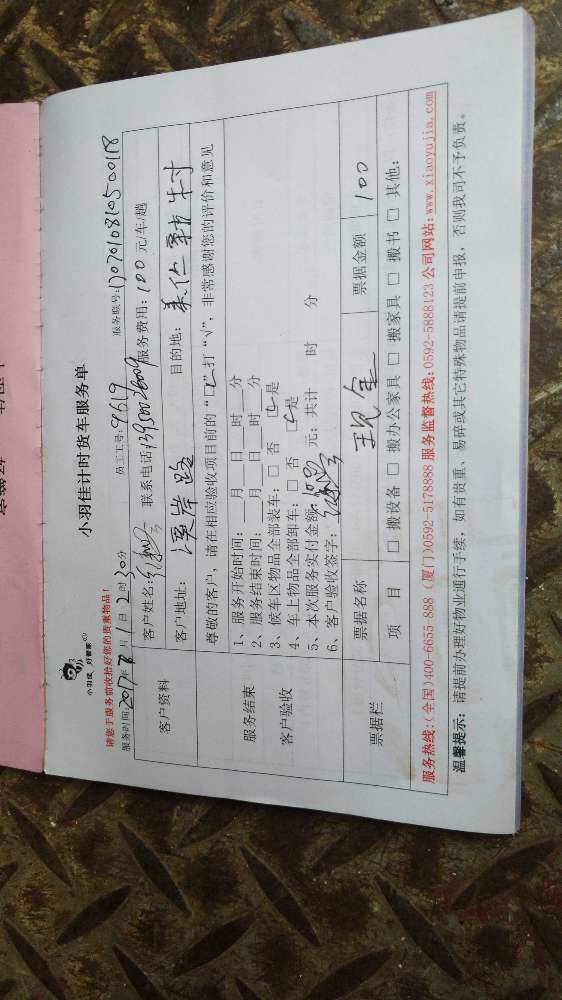 小羽佳 好管家
小羽佳计时货车服务单
请您于服务前收拾好您的贵重物品！
服务时间:2017年8月1日2时30分 员工工号:9619 服务联号:
客户资料
客户姓名: 联系电话 服务费用:100元/车/趟
客户地址: 溪岸路 目的地:
尊敬的客户，请在相应验收项目前的“□”打“√”，非常感谢您的评价和意见
服务结束
客户验收
1、服务开始时间:___月___日___时___分
2、服务结束时间:___月___日___时___分
3、候车区物品全部装车: □ 否 ☑ 是
4、车上物品全部卸车: □ 否 ☑ 是
5、本次服务实付金额:100元; 共计 时 分
6、客户验收签字:
票据栏
票据名称 现金 票据金额 100
项 目 □ 搬设备 □ 搬办公家具 □ 搬家具 □ 搬书 □ 其他:
服务热线:(全国)400-6655-888 (厦门)0592-5178888 服务监督热线:0592-5888123 公司网站:www.xiaoyujia.com
温馨提示: 请提前办理好物业通行手续，如有贵重、易碎或其它特殊物品请提前申报，否则我司不予负责。